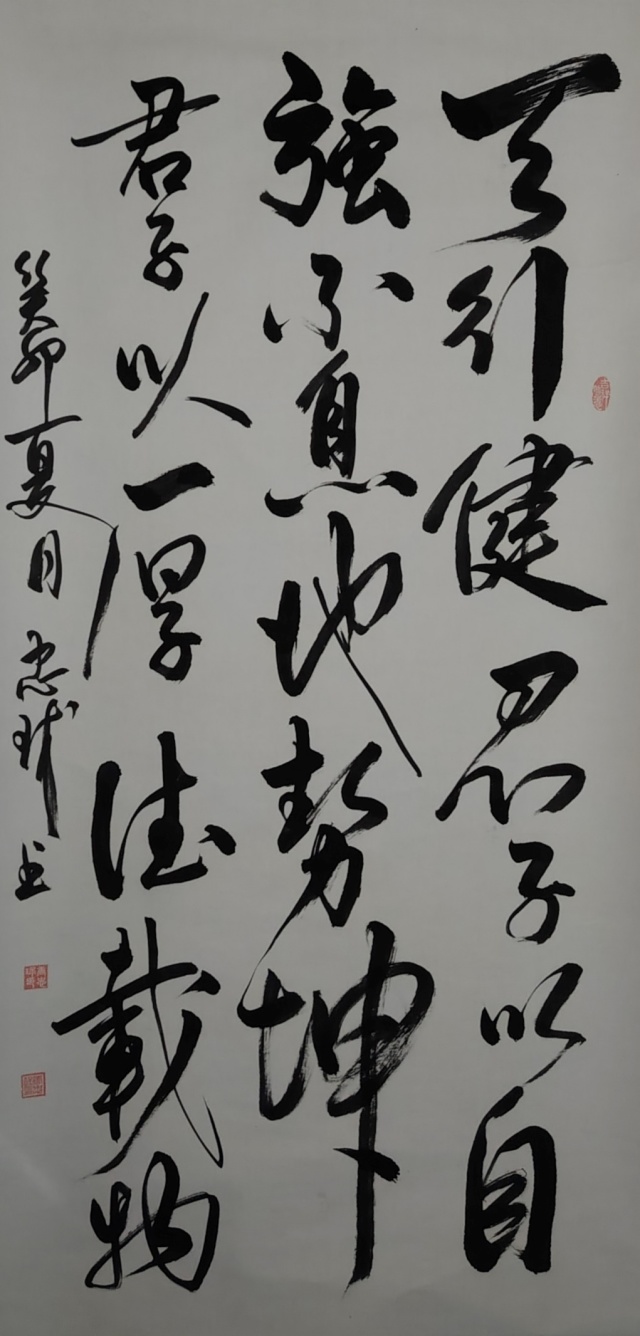 天行健君子以自
強不息地勢坤
君子以厚德載物
癸卯夏月忠球書